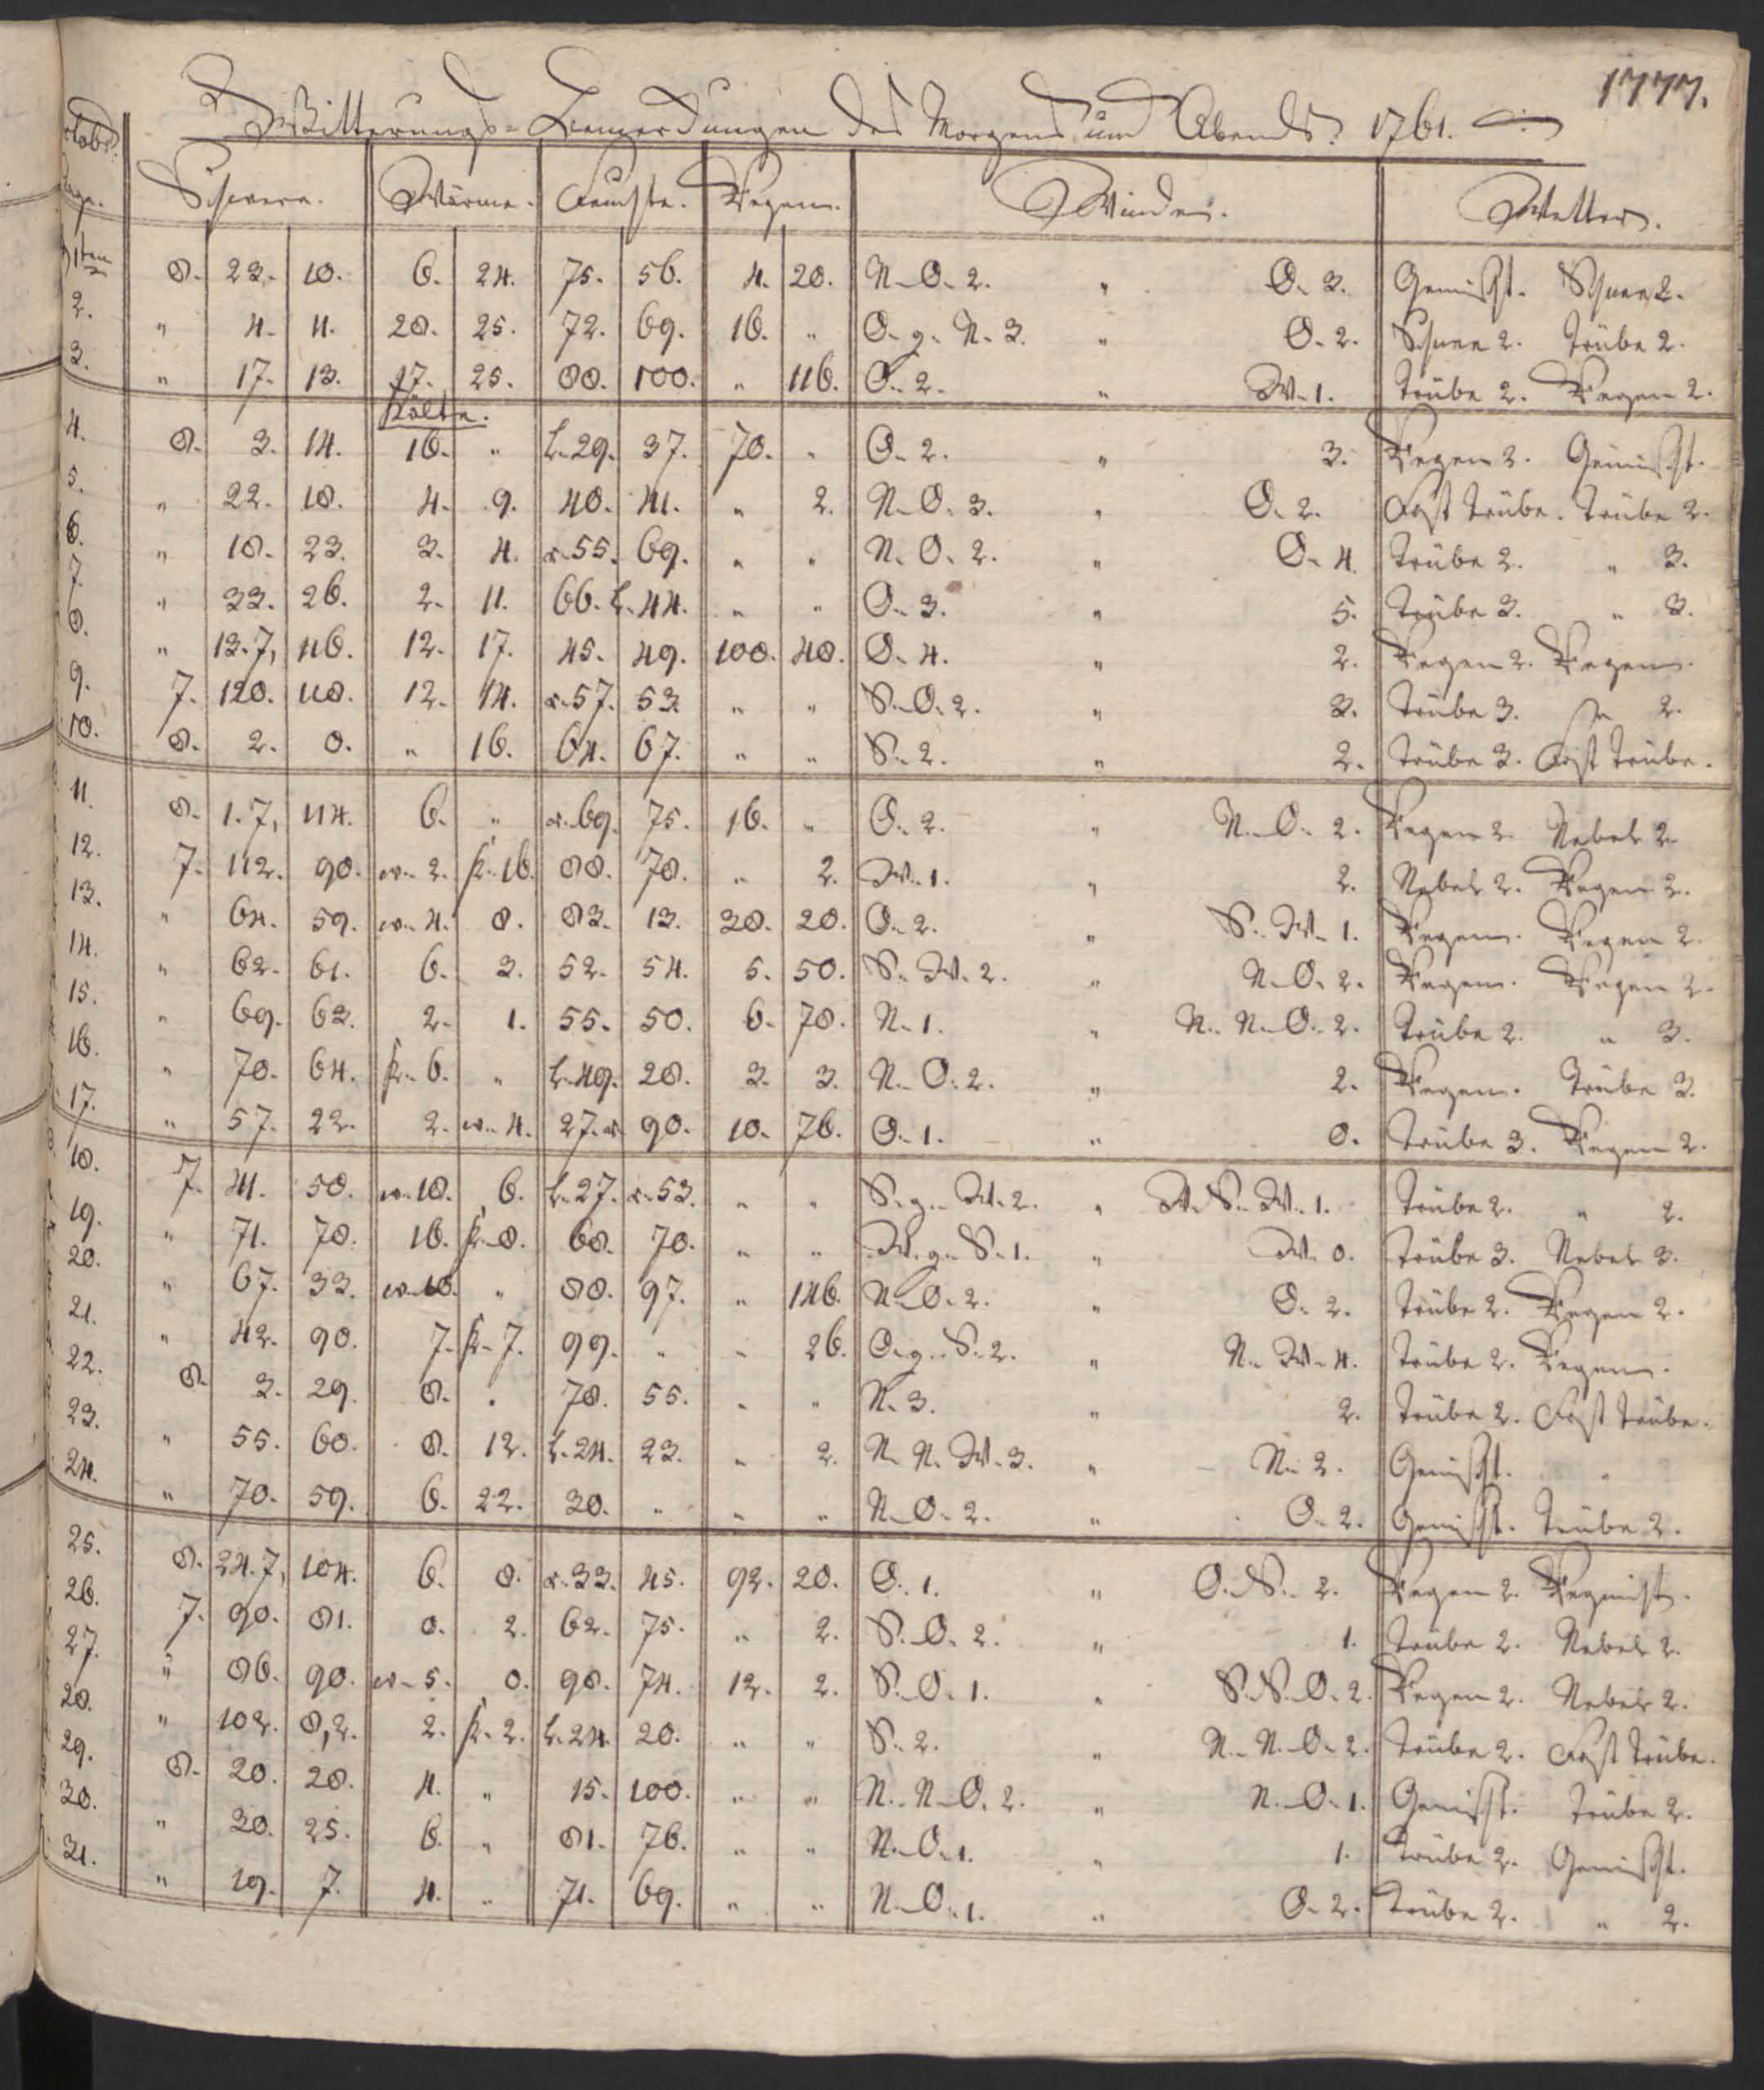 1777.
Witterungs-Bemerckungen des Morgens und Abends. 1761.
Schwere. Wärme. Feuchte. Regen. Winde. Wetter.
1ten 8. 23. 10. 6. 24. 75. 56. 4. 20. N. O. 2. " O. 3. Gemischt. Schnee 2.
2. " 4. 11. 28. 25. 72. 69. 16. " O. g. N. 3. " O. 2. Schnee 2. Trübe 2.
3. " 17. 13. 17. 25. 88. 100. " 116. O. 2. " W. 1. Trübe 2. Regen 2.
Kälte.
4. 8. 3. 14. 16. " L. 29. 37. 70. " O. 2. " 3. Regen 2. Gemischt.
5. " 22. 18. 4. 9. 40. 41. " 2. N. O. 3. " O. 2. Fast Trübe. Trübe 2.
6. " 18. 23. 3. 4. r. 55. 69. " " N. O. 2. " O. 4. Trübe 2. " 3.
7. " 33. 26. 2. 11. 66. L. 44. " " O. 3. " 5. Trübe 3. " 3.
8. " 13. 7, 116. 12. 17. 45. 49. 100. 48. O. 4. " 2. Regen 2. Regen.
9. 7. 120. 118. 12. 14. r. 57. 53. " " S. O. 2. " 3. Trübe 3. " 2.
10. 8. 2. 0. " 16. 64. 67. " " S. 2. " 2. Trübe 3. Fast Trübe.
11. 8. 1. 7, 114. 6. " r. 69. 75. 16. " O. 2. " N. O. 2. Regen 2. Nebel 2.
12. 7. 112. 90. w. 2. K. 16. 88. 78. " 2. W. 1. " 2. Nebel 2. Regen 2.
13. " 64. 59. w. 4. 8. 83. 13. 30. 20. O. 2. " S. W. 1. Regen. Regen 2.
14. " 62. 61. 6. 3. 52. 54. 5. 50. S. W. 2. " N. O. 2. Regen. Regen 2.
15. " 69. 63. 2. 1. 55. 50. 6. 78. N. 1. " N. N. O. 2. Trübe 2. " 3.
16. " 70. 64. K. 6. " L. 49. 28. 3. 3. N. O. 2. " 2. Regen. Trübe 3.
17. " 57. 22. 2. w. 4. 27. r. 90. 10. 76. O. 1. " 0. Trübe 3. Regen 2.
18. 7. 41. 50. w. 18. 6. L. 27. r. 53. " " S. g. W. 2. " W. S. W. 1. Trübe 2. " 2.
19. " 71. 78. 16. K. 8. 68. 70. " " W. g. S. 1. " W. 0. Trübe 3. Nebel 3.
20. " 67. 33. w. " 88. 97. " 146. N. O. 2. " O. 2. Trübe 2. Regen 2.
21. " 42. 90. 7. K. 7. 99. " " 26. O. g. S. 2. " N. W. 4. Trübe 2. Regen.
22. 8. 3. 29. 8. " 78. 55. " " N. 3. " 2. Trübe 2. Fast Trübe.
23. " 55. 60. 8. 12. L. 24. 23. " 2. N. N. W. 3. " N. 2. Gemischt. "
24. " 70. 59. 6. 22. 30. " " " N. O. 2. " O. 2. Gemischt. Trübe 2.
25. 8. 24. 7, 104. 6. 0. r. 33. 45. 92. 20. O. 1. " O. S. 2. Regen 2.
26. 7. 90. 81. 0. 2. 62. 75. " 2. S. O. 2. " 1. Trübe 2. Nebel 2.
27. " 86. 90. w. 5. 0. 98. 74. 12. 2. S. O. 1. " S. S. O. 2. Regen 2. Nebel 2.
28. " 102. 8, 2. 2. K. 2. L. 24. 20. " " S. 2. " N. N. O. 2. Trübe 2. Fast Trübe.
29. 8. 20. 28. 4. " 15. 100. " " N. N. O. 2. " N. O. 1. Gemischt. Trübe 2.
30. " 30. 25. 6. " 81. 76. " " N. O. 1. " 1. Trübe 2. Gemischt.
31. " 19. 7. 4. " 71. 69. " " N. O. 1. " O. 2. Trübe 2. " 2.